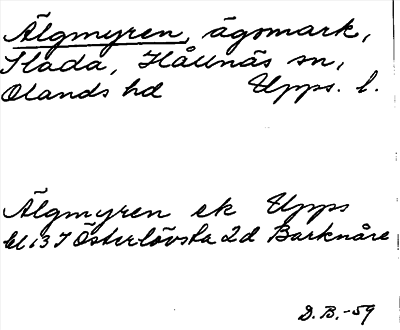 Älgmyren, ägomark,
Slada, Hållnäs sn,
Olands hd Upps. l.
Älgmyren ek Upps
bl 137 Österlövsta 2d Barknåre
D.B.-59